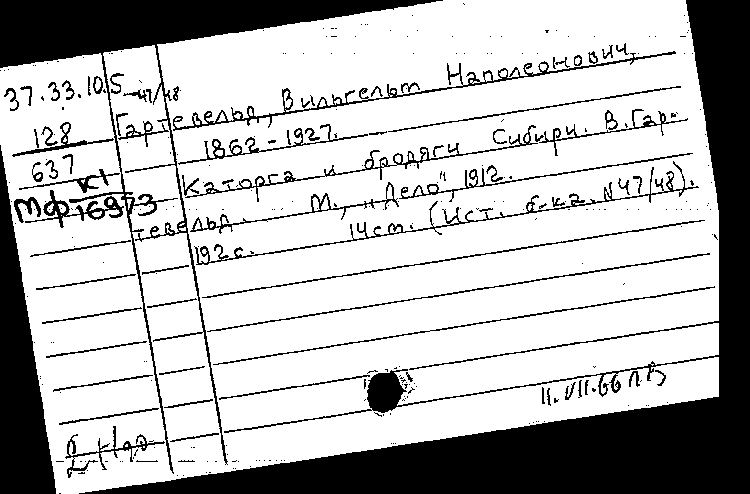 37.33.10.5-47/48
128
637
МФ К1
16973
Гартевельд, Вильгельм Наполеонович,
1862-1927.
Каторга и бродяги Сибири. В. Гар-
тевельд. М., „Дело", 1912.
192с. 14см. (Ист. б-ка. N47/48).
11.VII.66